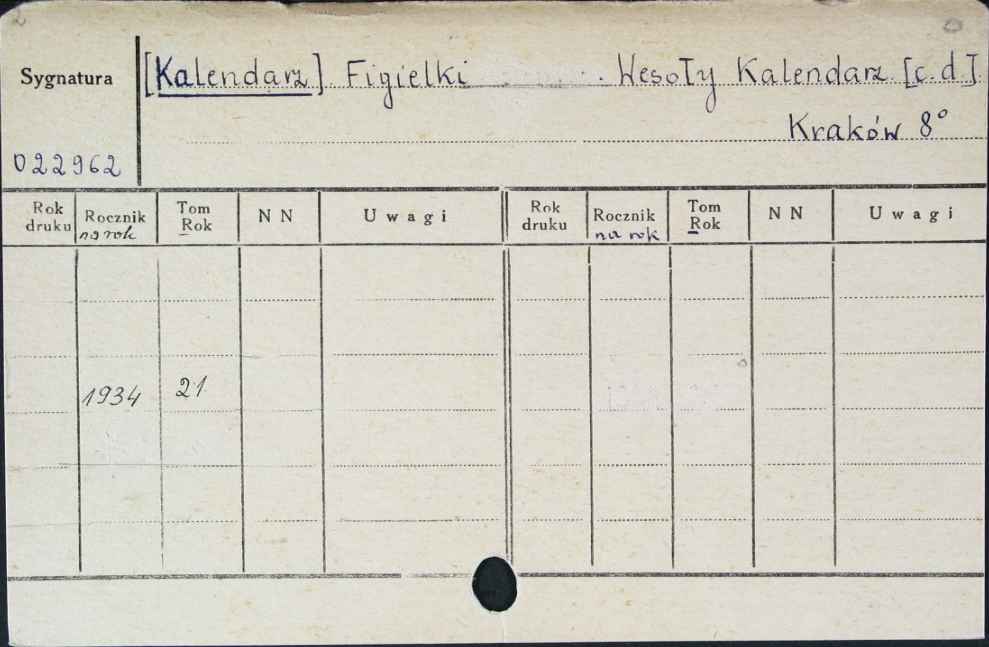 Sygnatura
[Kalendarz] Figielki Wesoły Kalendarz [c.d.]
Kraków 8°
022962
Rok druku Rocznik na rok Tom Rok NN Uwagi Rok druku Rocznik na rok Tom Rok NN Uwagi
1934 21